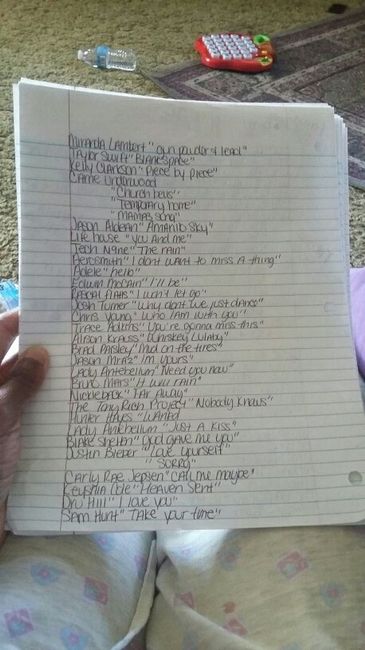 Miranda Lambert "gun powder & lead"
Taylor Swift "Blank Space"
Kelly Clarkson "Piece by piece"
Carrie Underwood
"Church bells"
"Temporary home"
"Mamas song"
Jason Aldean "Amarillo sky"
Life house "You and me"
Tech N9ne "The rain"
Aerosmith "I dont want to miss A thing"
Adele "hello"
Edwin McCain "I'll be"
Rascal Flatts "I won't let go"
Josh Turner "Why dont we just dance"
Chris Young "Who I Am with you"
Trace Adkins "You're gonna miss this"
Alison Krauss "Whiskey Lulaby"
Brad Paisley "Mud on the tires"
Jason Mraz "I'm yours"
Lady Antebellum "Need you now"
Bruno Mars "It will rain"
Nickleback "Far Away"
The Tony Rich Project "Nobody Knows"
Hunter Hayes "Wanted"
Lady Antebellum "Just A Kiss"
Blake Shelton "God gave me you"
Justin Bieber "Love yourself"
"Sorry"
Carly Rae Jepsen "Call me maybe"
Keyshia Cole "Heaven Sent"
Dru Hill "I love you"
Sam Hunt "Take your time"